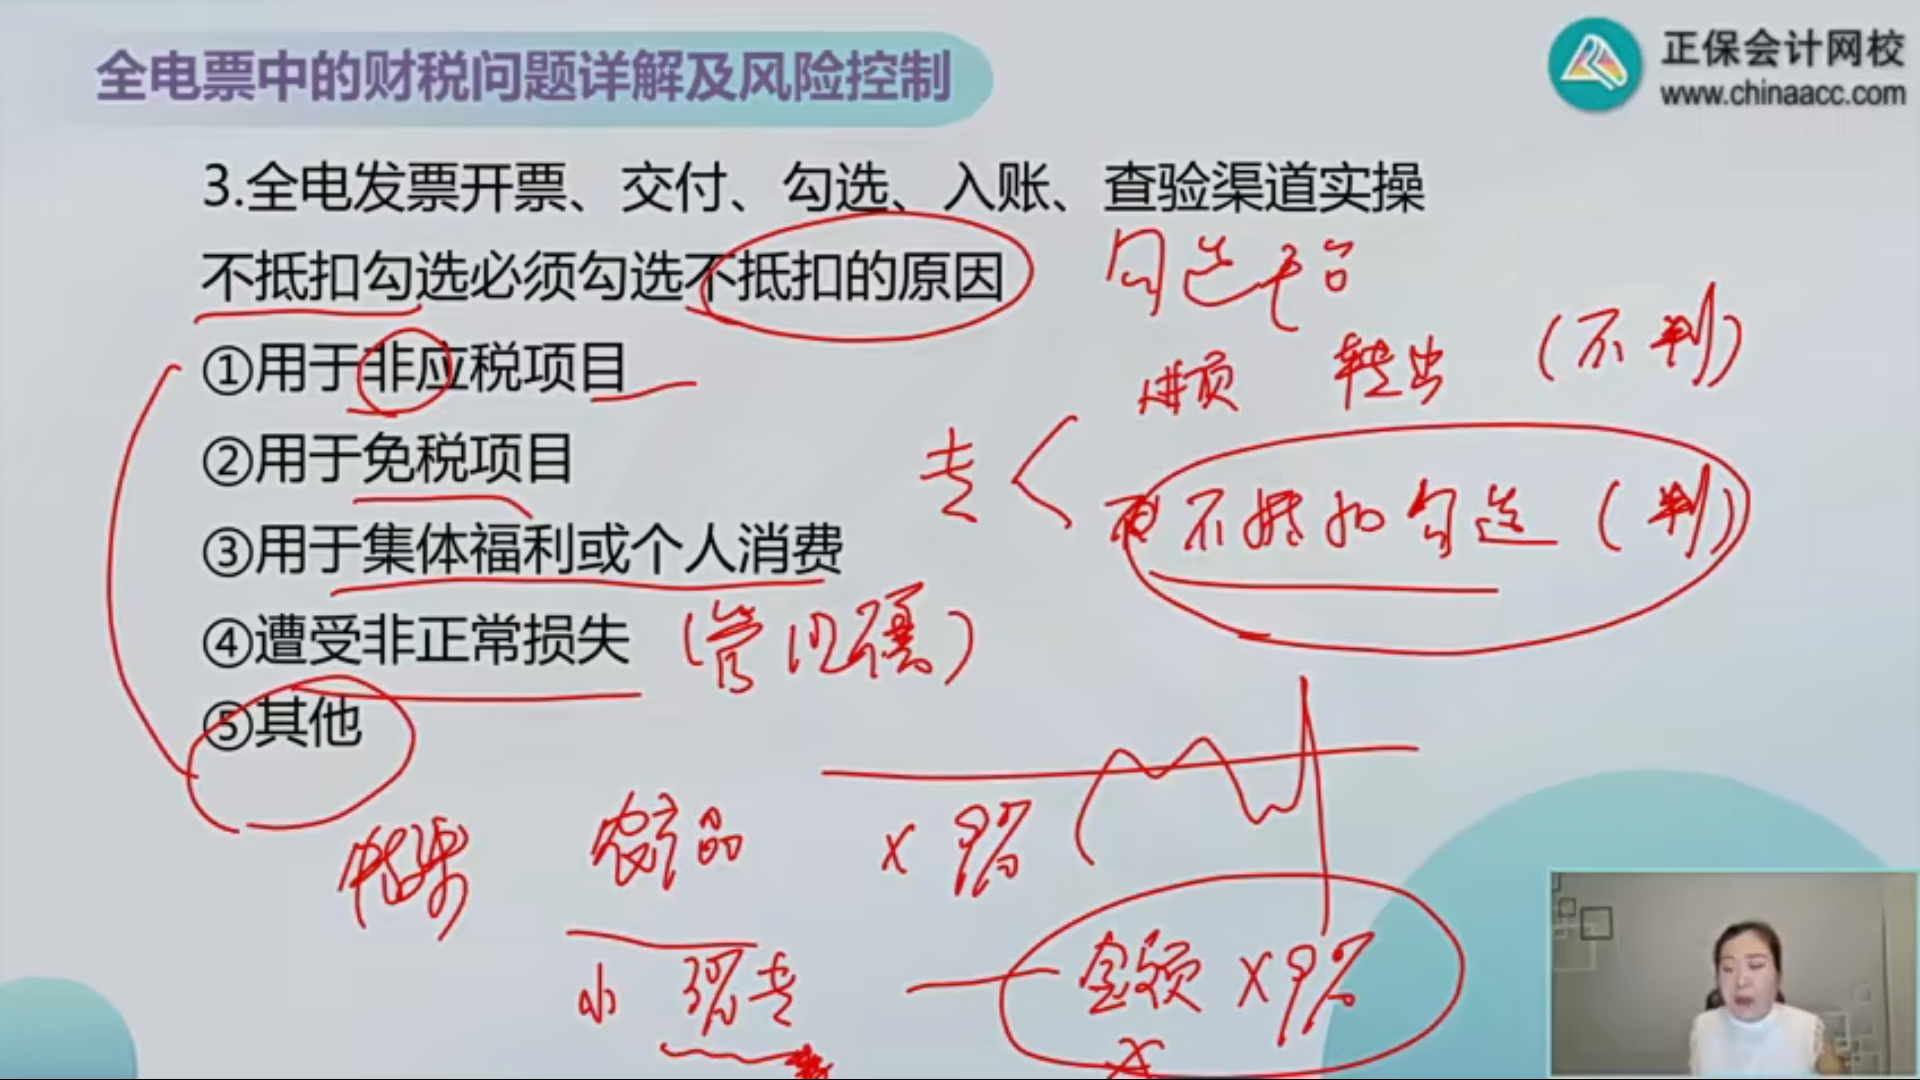 全电票中的财税问题详解及风险控制
正保会计网校
www.chinaacc.com
3.全电发票开票、交付、勾选、入账、查验渠道实操
不抵扣勾选必须勾选不抵扣的原因
勾选平台
①用于非应税项目
进项 转出 (不判)
②用于免税项目
专
不抵扣勾选 (判)
③用于集体福利或个人消费
④遭受非正常损失
(管
⑤其他
特殊
农产品
× 9%
小 3% 专
金额 × 9%